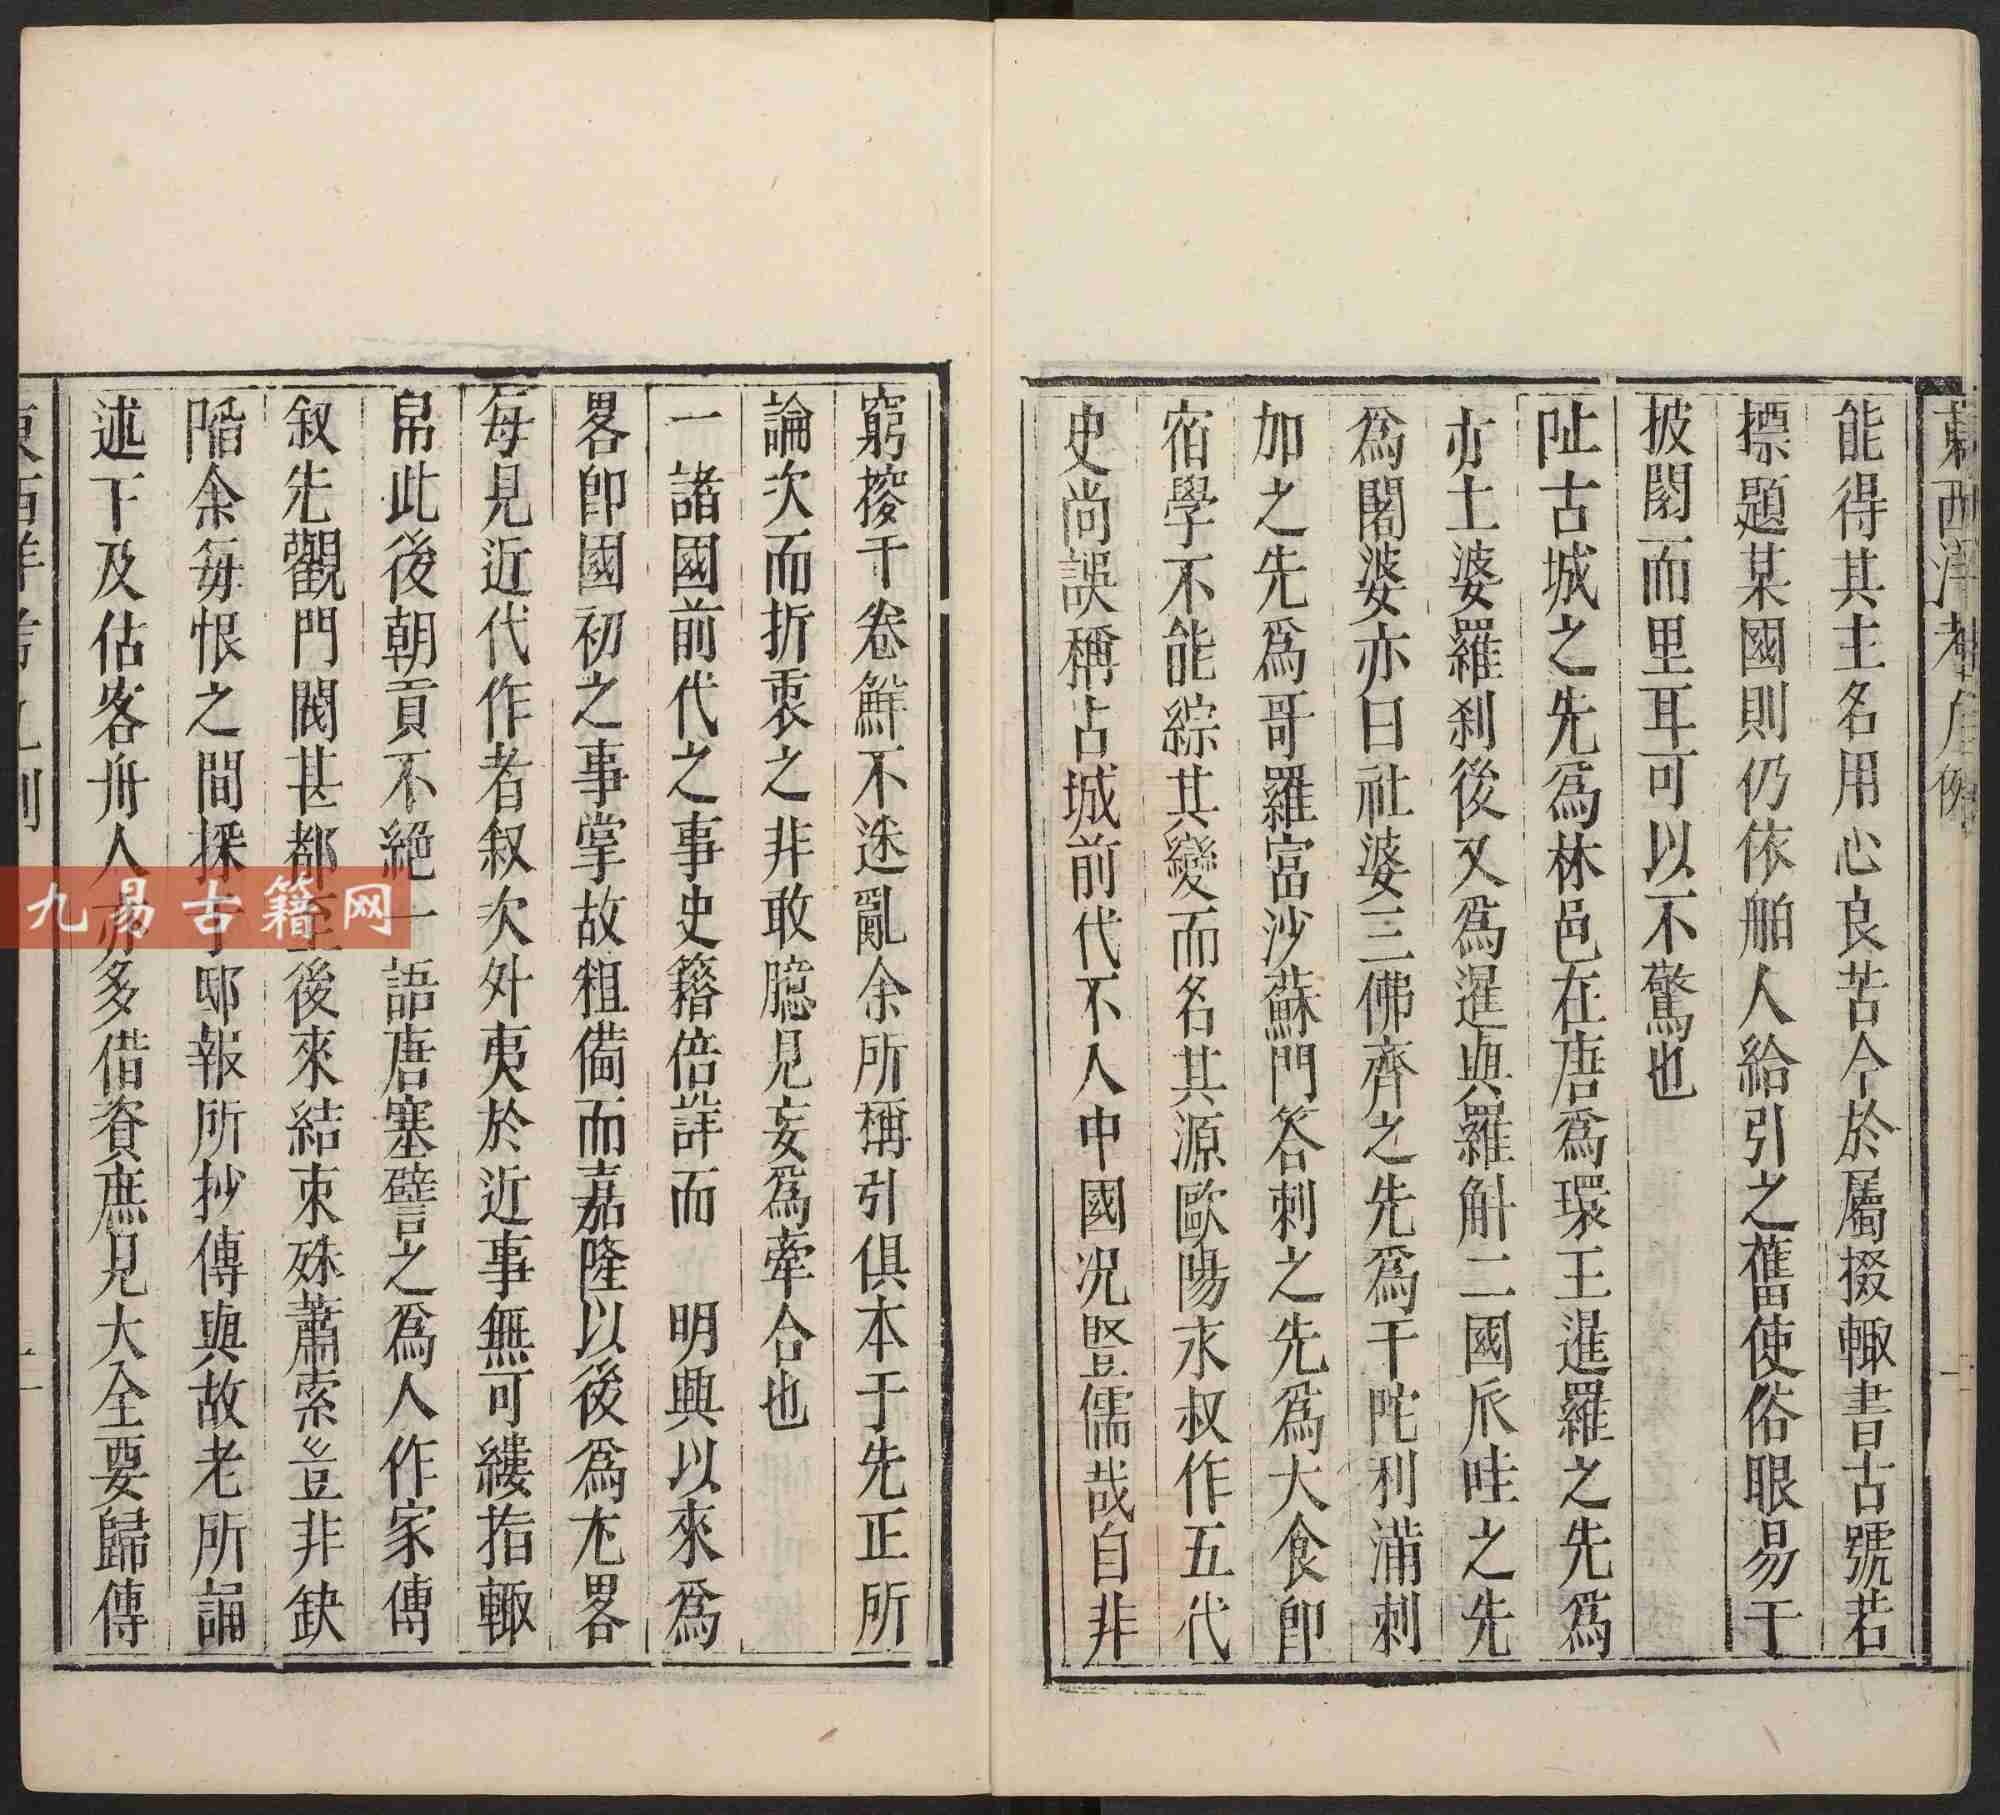 東西洋考凡例
能得其主名用心良苦今於屬掇輙書古號若
摽題某國則仍依舶人給引之舊使俗眼易于
披閱而里耳可以不驚也
呲古城之先爲林邑在唐爲環王暹羅之先爲
赤土婆羅刹後又爲暹與羅斛二國爪哇之先
爲闍婆亦曰社婆三佛齊之先爲干陀利滿剌
加之先爲哥羅富沙蘇門答剌之先爲大食卽
宿學不能綜其變而名其源歐陽永叔作五代
史尚誤稱占城前代不人中國况竪儒哉自非
窮搜千卷鮮不迷亂余所稱引俱本于先正所
論次而折衷之非敢臆見妄爲牽合也
一諸國前代之事史籍倍詳而 明興以來爲
畧卽國初之事掌故粗備而嘉隆以後爲尤畧
每見近代作者叙次外夷於近事無可縷指輙
帛此後朝貢不絕一語唐塞譬之爲人作家傳
叙先觀門閥甚都至後來結束殊蕭索豈非缺
陷余每恨之間採于邸報所抄傳與故老所誦
述下及估客舟人亦多借資庶見大全要歸傳
東西洋考凡例
九易古籍网